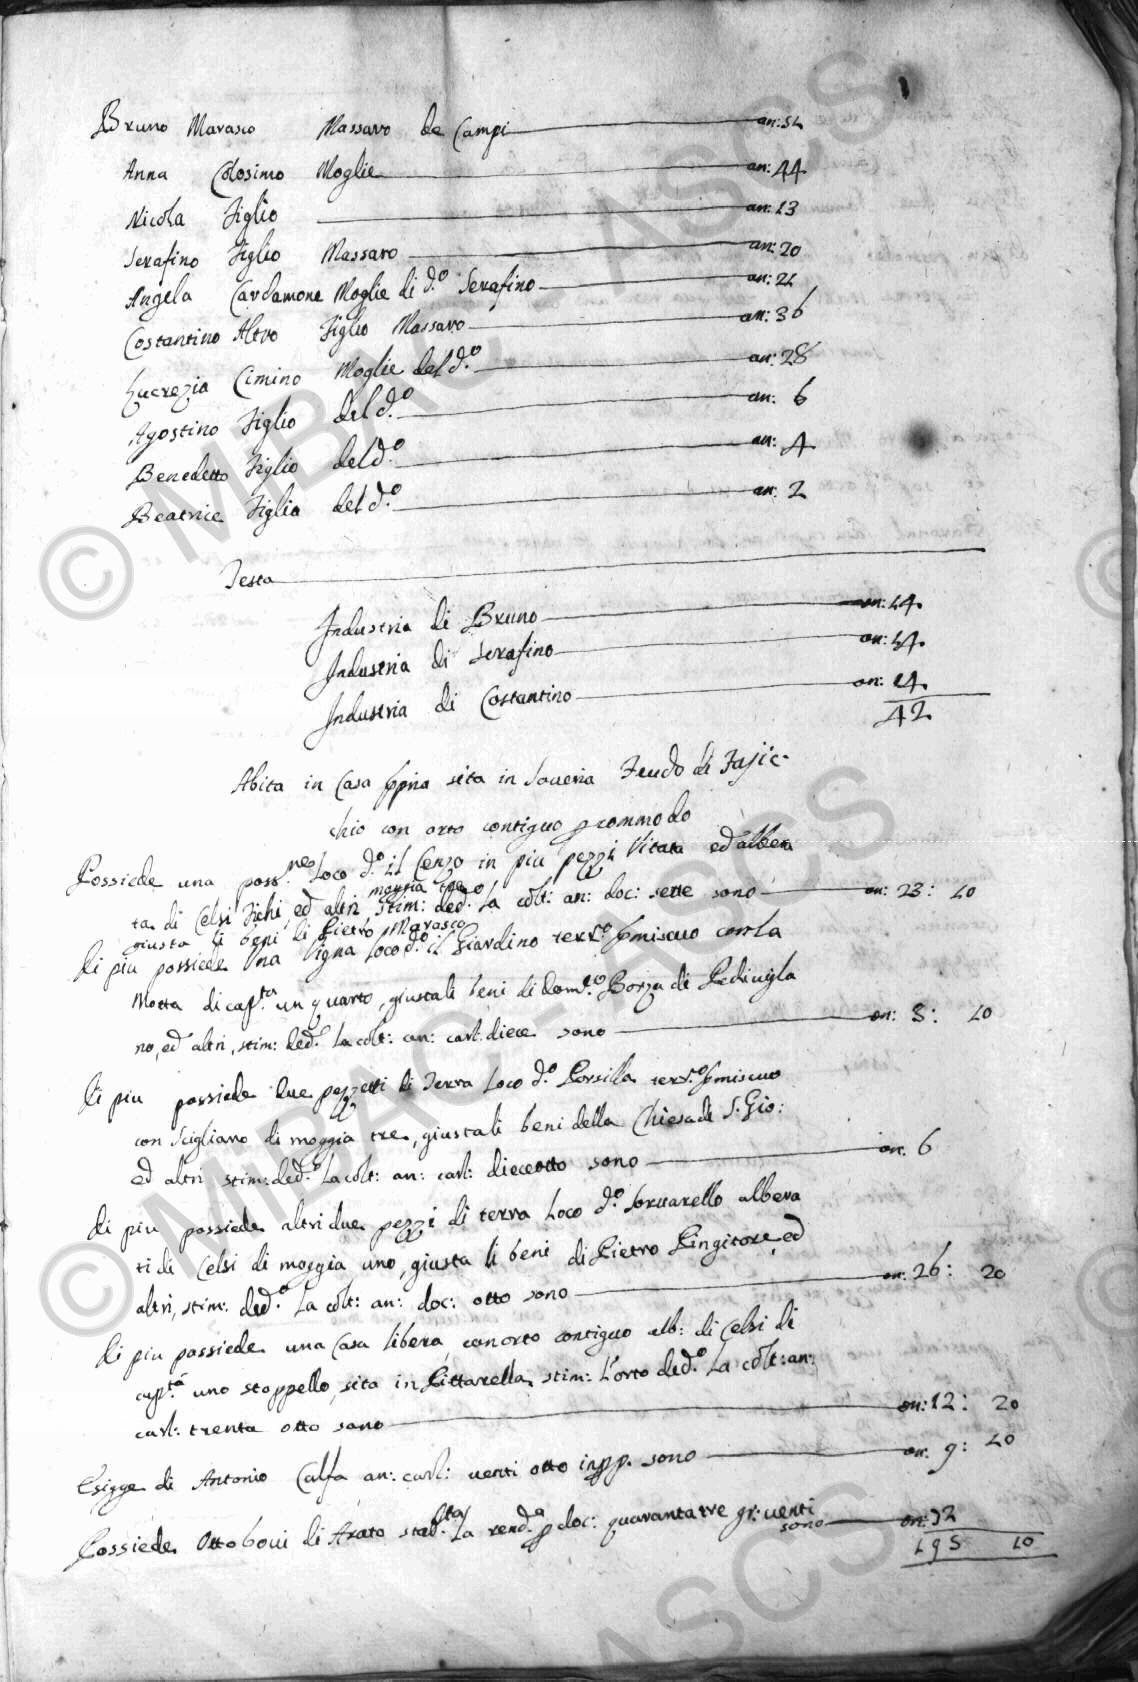 Bruno Marasco Massaro de Campi an: 51
Anna Colosimo Moglie an: 44
Nicola figlio an: 13
Serafino figlio Massaro an: 20
Angela Cardamone Moglie di d.o Serafino an: 21
Costantino Altro figlio Massaro an: 36
Lucrezia Cimino Moglie del d.o an: 28
Agostino figlio del d.o an: 6
Benedetto figlio del d.o an: 4
Beatrice figlia del d.o an: 2
Testa
Industria di Bruno on: 14.
Industria di Serafino on: 14.
Industria di Costantino on: 14.
42
Abita in Casa ppria sita in Soveria Feudo di Fajic-
chio con orto contiguo p commodo
Possiede una poss.neo Loco d.o il Cenzo in piu pezzi Vitata ed albera
moggia tre
ta di Celsi Fichi, ed altri stim: ded.o la colt: an: doc: sette sono on: 23: 10
giusta li beni di Pietro Marasco
Di piu possiede una Vigna loco d.o il Giardino terr.o pmiscuo con la
Motta di cap.ta un quarto, giusta li beni di Dom.co Borza di Pedivigla
no, ed altri, stim: ded.o la colt: an: carl: diece sono on: 3: 10
Di piu possiede due pezzetti di Terra Loco d.o Corsilla terr.o pmiscuo
con Scigliano di moggia tre, giusta li beni della Chiesa di S. Gio:
ed altri stim: ded.o la colt: an: carl: dieceotto sono on: 6
Di piu possiede altri due pezzi di terra Loco d.o Soruarello albera
ti di Celsi di moggia uno, giusta li beni di Pietro Pingitore, ed
altri, stim: ded.o la colt: an: doc: otto sono on: 26: 20
Di piu possiede una Casa libera, con orto contiguo alb: di Celsi di
cap.tà uno stoppello, sita in Pittarella, stim: l'orto ded.o la colt: an:
carl: trenta otto sono on: 12: 20
Esigge di Antonio Calfa an: carl: venti otto in pp. sono on: 9: 10
Possiede Otto bovi di Arato stab.lta la rend.a p doc: quarantatre gr: venti
sono on: 72
195 10
© MiBAC - ASCS
© MiBAC - ASCS
ASCS